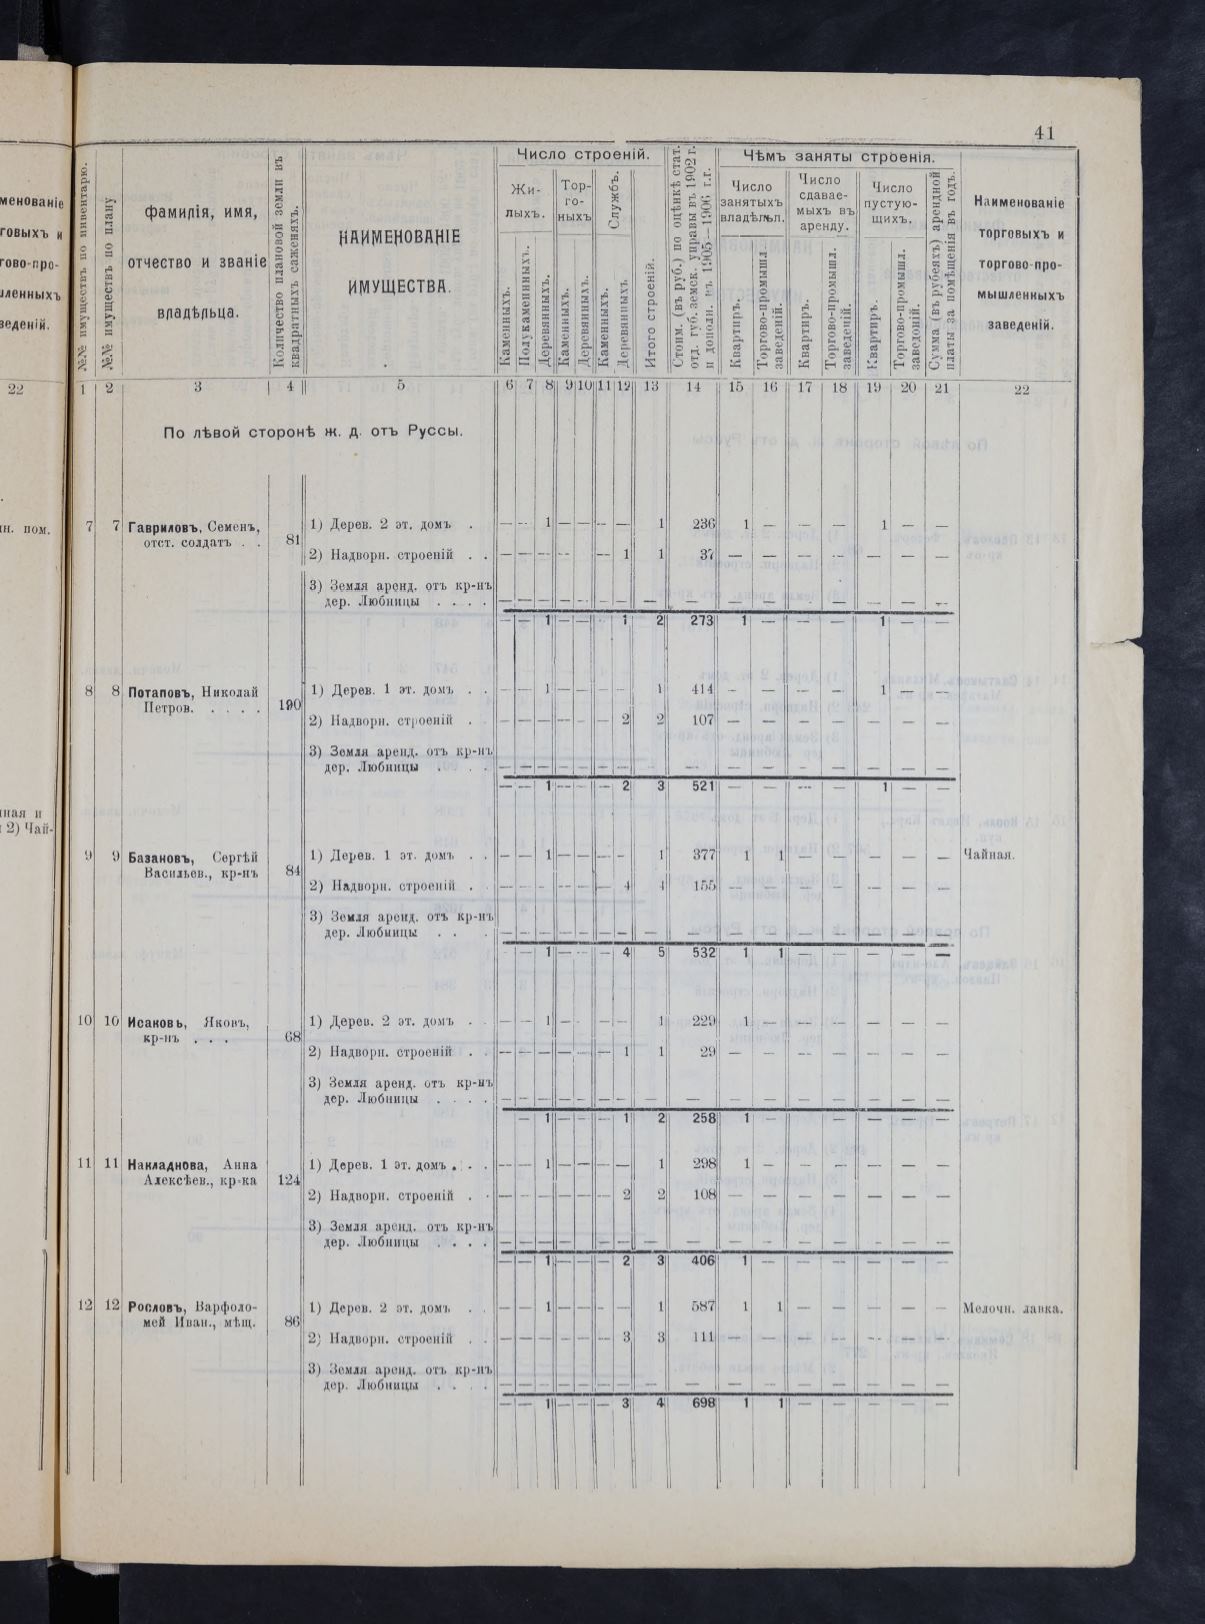 41
менованіе
говыхъ и
гово-про-
шленныхъ
веденій.
22
н. пом.
ная и
2) Чай-
№№ имуществъ по инвентарю.
№№ имуществъ по плану
фамилія, имя,
отчество и званіе
владѣльца.
Количество плановой земли въ
квадратныхъ саженяхъ.
НАИМЕНОВАНІЕ
ИМУЩЕСТВА.
Число строеній.
Жи-
лыхъ.
Тор-
го-
ныхъ
Службъ.
Каменныхъ.
Полукаменныхъ.
Деревянныхъ.
Каменныхъ.
Деревянныхъ.
Каменныхъ.
Деревянныхъ
Итого строеній.
Стоим. (въ руб.) по оцѣнкѣ стат.
отд. губ. земск. управы въ 1902 г.
и дополн. въ 1905—1906 г.г.
Чѣмъ заняты строенія.
Число
занятыхъ
владѣльл.
Число
сдавае-
мыхъ въ
аренду.
Число
пустую-
щихъ.
Квартиръ.
Торгово-промышл
заведеній.
Квартиръ.
Торгово-промышл.
заведеній.
Квартиръ.
Торгово-промышл.
заведеній.
Сумма (въ рубляхъ) арендной
платы за помѣщенія въ годъ.
Наименованіе
торговыхъ и
торгово-про-
мышленныхъ
заведеній.
1 2 3 4 5 6 7 8 9 10 11 12 13 14 15 16 17 18 19 20 21 22
По лѣвой сторонѣ ж. д. отъ Руссы.
7 7 Гавриловъ, Семенъ, 1) Дерев. 2 эт. домъ . — — 1 — — — — 1 236 1 — — — 1 — —
отст. солдатъ . . 81
2) Надворн. строеній . . — — — — — — 1 1 37 — — — — — — —
3) Земля аренд. отъ кр-нъ
дер. Любницы . . . . — — — — — — — — — — — — — — — —
— — 1 — — — 1 2 273 1 — — — 1 — —
8 8 Потаповъ, Николай 1) Дерев. 1 эт. домъ . . — — 1 — — — — 1 414 — — — — 1 — —
Петров. . . . . 190
2) Надворн. строеній . — — — — — — 2 2 107 — — — — — — —
3) Земля аренд. отъ кр-нъ
дер. Любницы . . . — — — — — — — — — — — — — — — —
— — 1 — — — 2 3 521 — — — — 1 — —
9 9 Базановъ, Сергѣй 1) Дерев. 1 эт. домъ . . — — 1 — — — — 1 377 1 1 — — — — — Чайная.
Васильев., кр-нъ 84
2) Надворн. строеній . — — — — — — 4 4 155 — — — — — — —
3) Земля аренд. отъ кр-нъ
дер. Любницы . . . — — — — — — — — — — — — — — — —
— — 1 — — — 4 5 532 1 1 — — — — —
10 10 Исаковъ, Яковъ, 1) Дерев. 2 эт. домъ . . — — 1 — — — — 1 229 1 — — — — — —
кр-нъ . . . 68
2) Надворн. строеній . . — — — — — — 1 1 29 — — — — — — —
3) Земля аренд. отъ кр-нъ
дер. Любницы . . . . — — — — — — — — — — — — — — — —
— 1 — — — 1 2 258 1 — — — — —
11 11 Накладнова, Анна 1) Дерев. 1 эт. домъ . . . — — 1 — — — — 1 298 1 — — — — — —
Алексѣев., кр-ка 124
2) Надворн. строеній . . — — — — — — 2 2 108 — — — — — — —
3) Земля аренд. отъ кр-нъ
дер. Любницы . . . . — — — — — — — — — — — — — — — —
— — 1 — — — 2 3 406 1 — — — — — —
12 12 Рословъ, Варфоло- 1) Дерев. 2 эт. домъ . . — — 1 — — — — 1 587 1 1 — — — — — Мелочн. лавка.
мей Иван., мѣщ. 86
2) Надворн. строеній . . — — — — — — 3 3 111 — — — — — — —
3) Земля аренд. отъ кр-нъ
дер. Любницы . . . . — — — — — — — — — — — — — — — —
— — 1 — — — 3 4 698 1 1 — — — — —